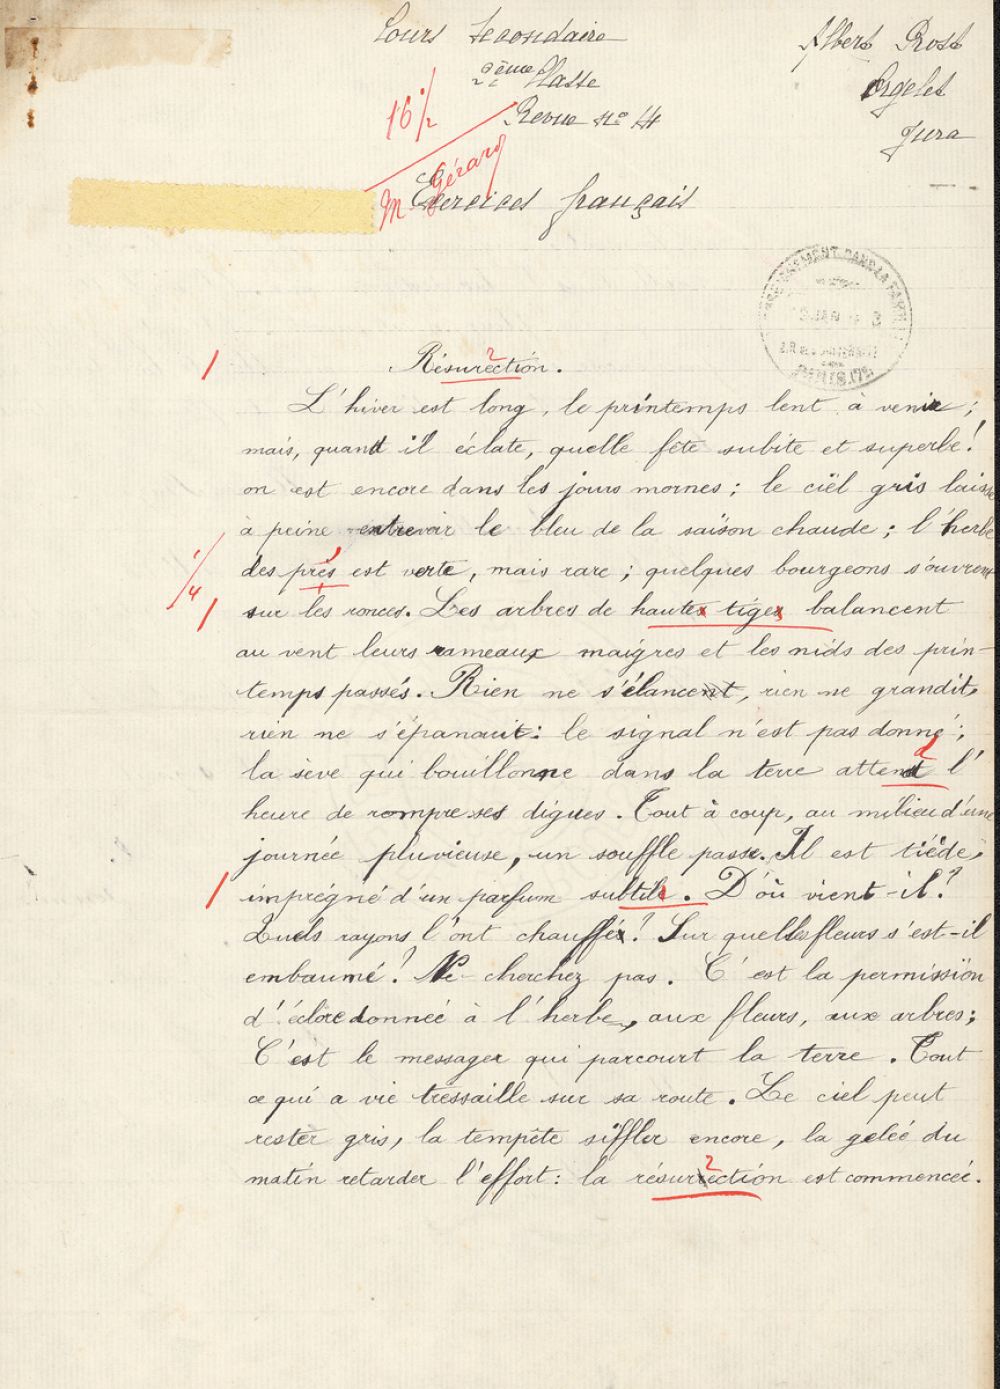 Cours Secondaire
Albert Prost
2ème Classe
Orgelet
16 1/2
Revue nº 14
Jura
M Gérard
Exercices français
1
Résurection.
L'hiver est long, le printemps lent à venir;
mais, quand il éclate, quelle fête subite et superbe!
on est encore dans les jours mornes; le ciel gris laisse
à peine entrevoir le bleu de la saison chaude; l'herbe
des prés est verte, mais rare; quelques bourgeons s'ouvrent
1/4
1
sur les ronces. Les arbres de hautes tiges balancent
au vent leurs rameaux maigres et les nids des prin-
temps passés. Rien ne s'élance, rien ne grandit,
rien ne s'épanouit: le signal n'est pas donné;
la sève qui bouillonne dans la terre attend l'
heure de rompre ses digues. Tout à coup, au milieu d'une
journée pluvieuse, un souffle passe. Il est tiède,
1
imprégné d'un parfum subtile. D'où vient-il?
Quels rayons l'ont chauffé? Sur quelles fleurs s'est-il
embaumé? Ne cherchez pas. C'est la permission
d'éclore donnée à l'herbe, aux fleurs, aux arbres;
C'est le messager qui parcourt la terre. Tout
ce qui a vie tressaille sur sa route. Le ciel peut
rester gris, la tempête siffler encore, la gelée du
matin retarder l'effort: la résurection est commencée.